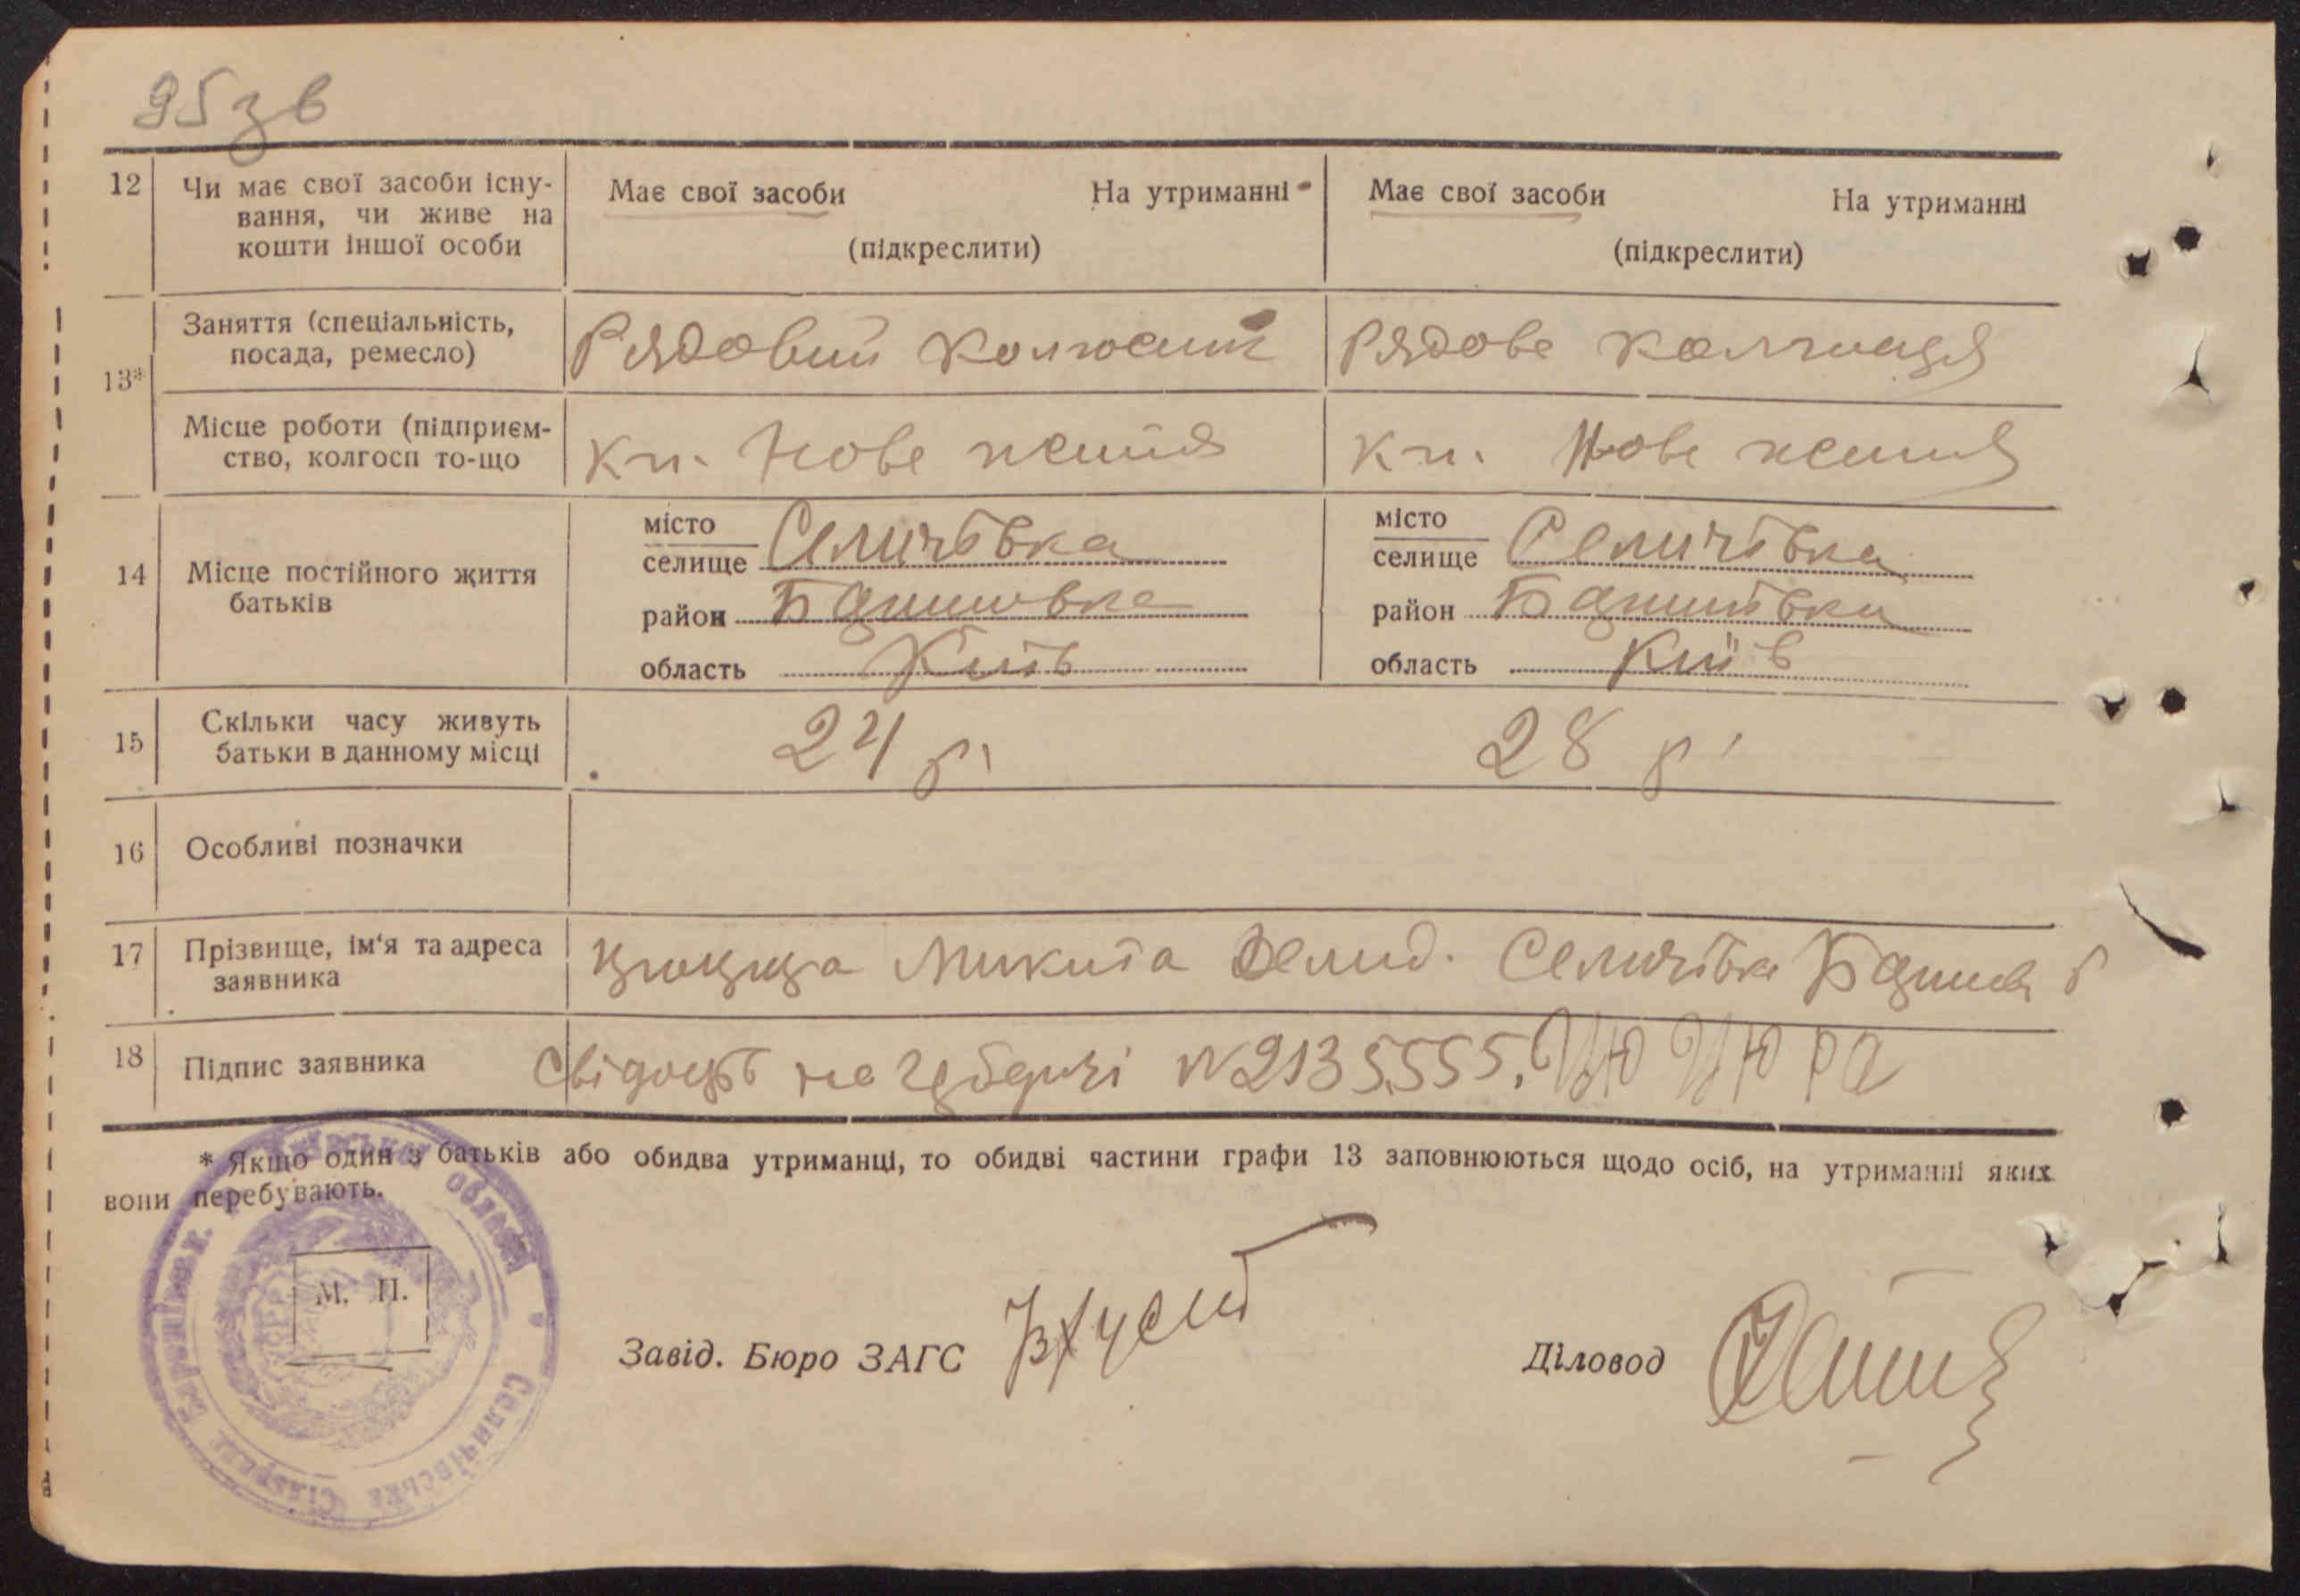 95зв
12 Чи має свої засоби існу- Має свої засоби На утриманні Має свої засоби На утриманні
вання, чи живе на
кошти іншої особи (підкреслити) (підкреслити)
13* Заняття (спеціальність, Рядовий колгосник Рядове
посада, ремесло)
Місце роботи (підприєм- Кп. Нове життя Кп. Нове життя
ство, колгосп то-що
14 Місце постійного життя батьків
місто місто
селище Селичівка селище Селичівка
район район
область Київ область Київ
15 Скільки часу живуть 24 р. 28 р.
батьки в данному місці
16 Особливі позначки
17 Прізвище, ім'я та адреса Микита Селичівка
заявника
18 Підпис заявника №2135555.
* Якщо один з батьків або обидва утриманці, то обидві частини графи 13 заповнюються щодо осіб, на утриманні яких
вони перебувають.
М. П.
Завід. Бюро ЗАГС
Діловод
Селичівська Сільрада